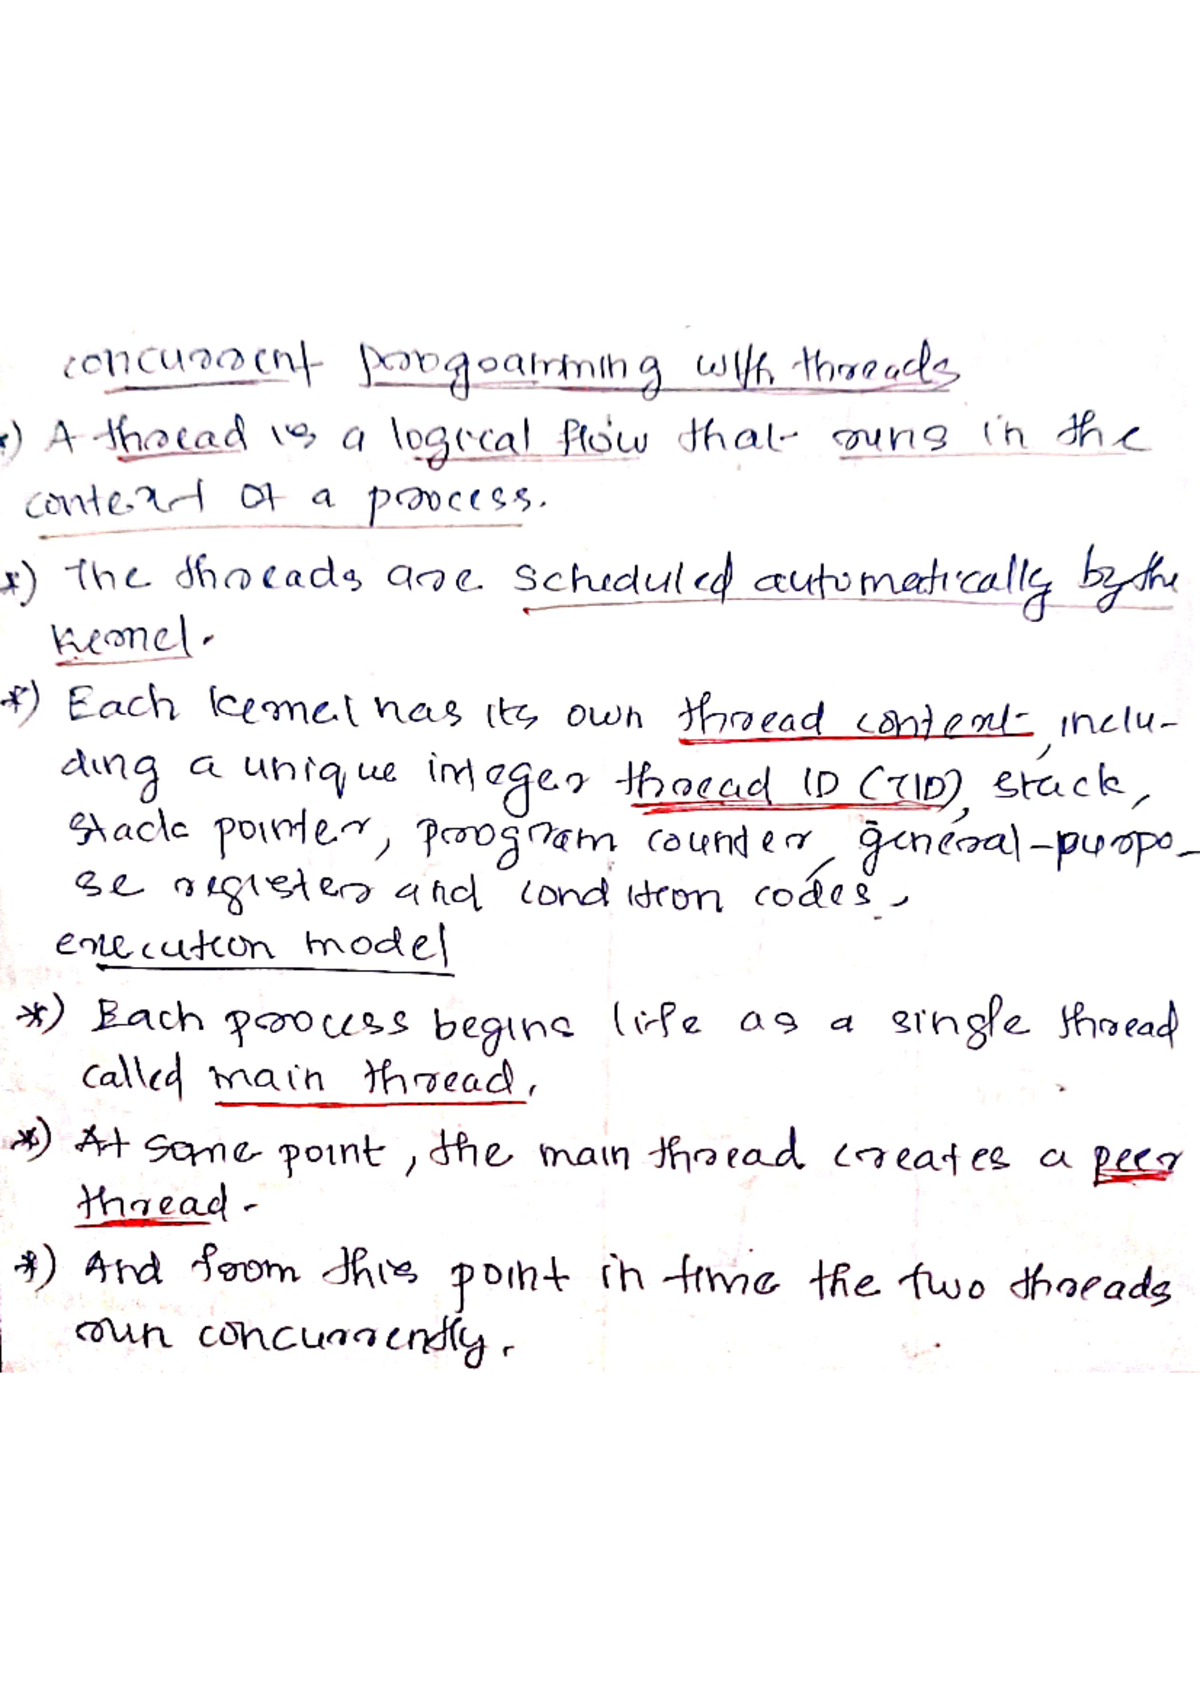 concurrent programming with threads
*) A thread is a logical flow that runs in the
context of a process.
*) The threads are scheduled automatically by the
kernel.
*) Each kernel has its own thread context, inclu-
ding a unique integer thread ID (TID), stack,
stack pointer, program counter, general-purpo-
se register and condition codes.
execution model
*) Each process begins life as a single thread
called main thread.
*) At some point, the main thread creates a peer
thread.
*) And from this point in time the two threads
run concurrently.